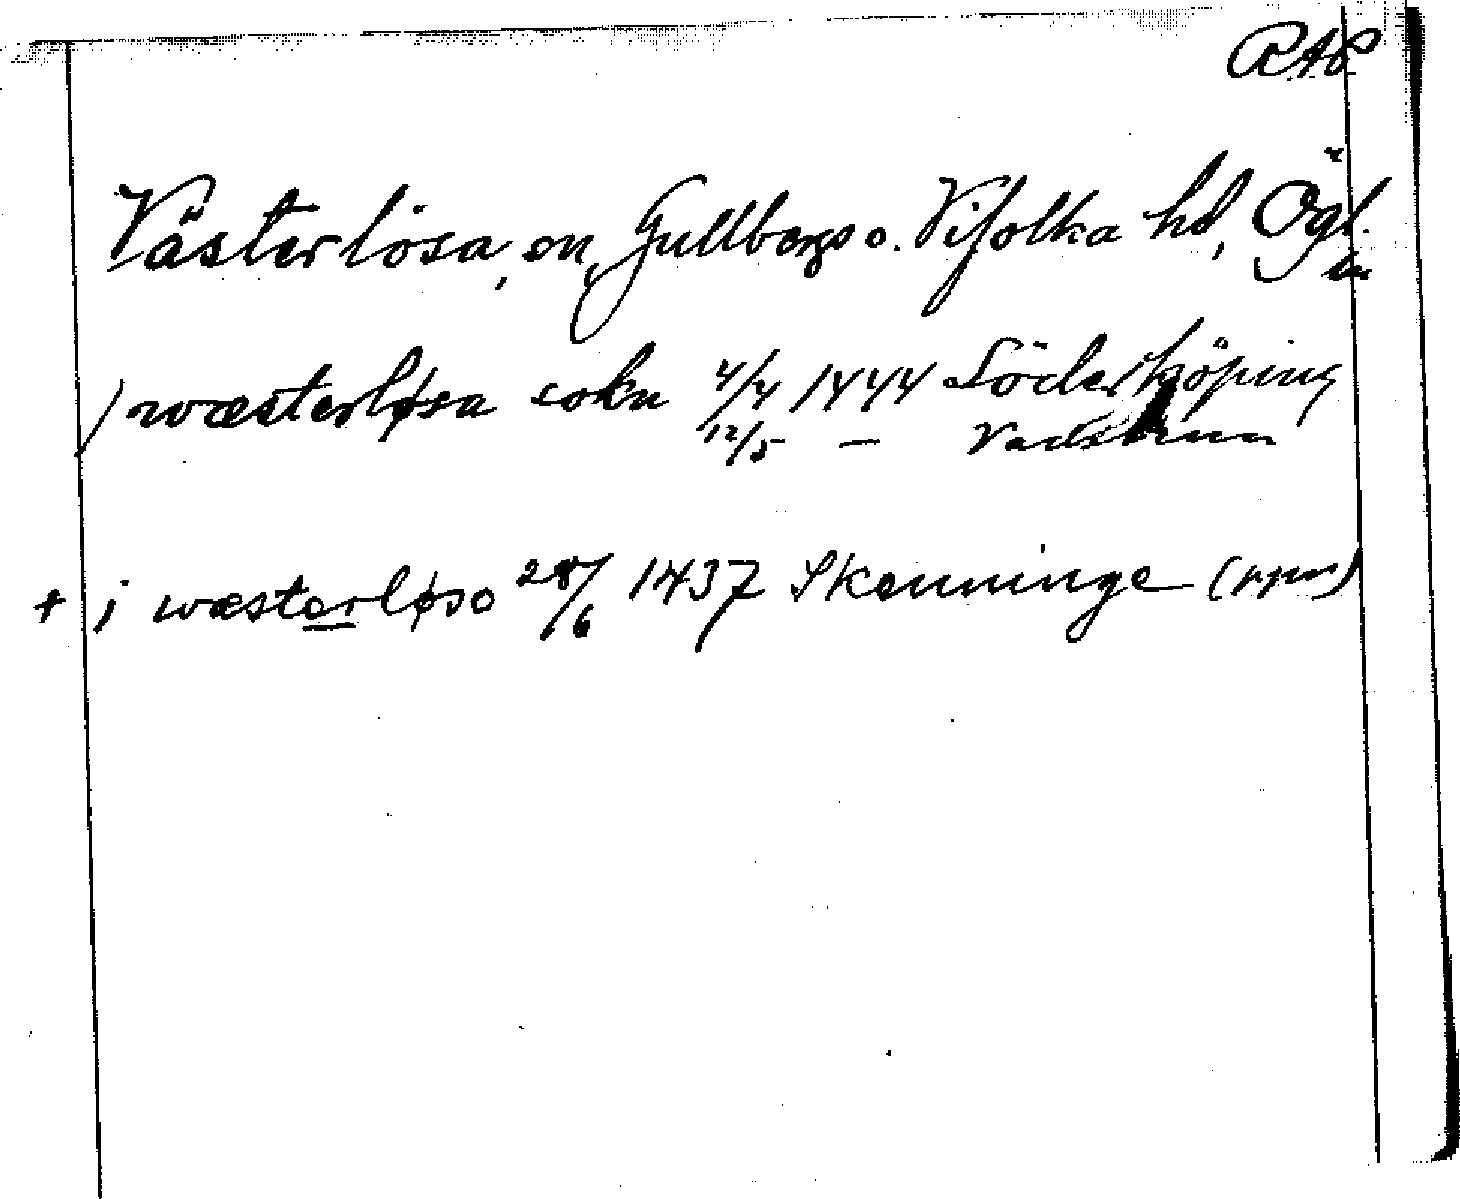 RAP
Västerlösa, sn, Gullbergs o. Vifolka hd, Ögl.
ln
j wæsterløsa sokn 4/4 1444 Söderköping
12/5 — Vadstena
+ j wæsterløso 28/6 1437 Skenninge (ppr)